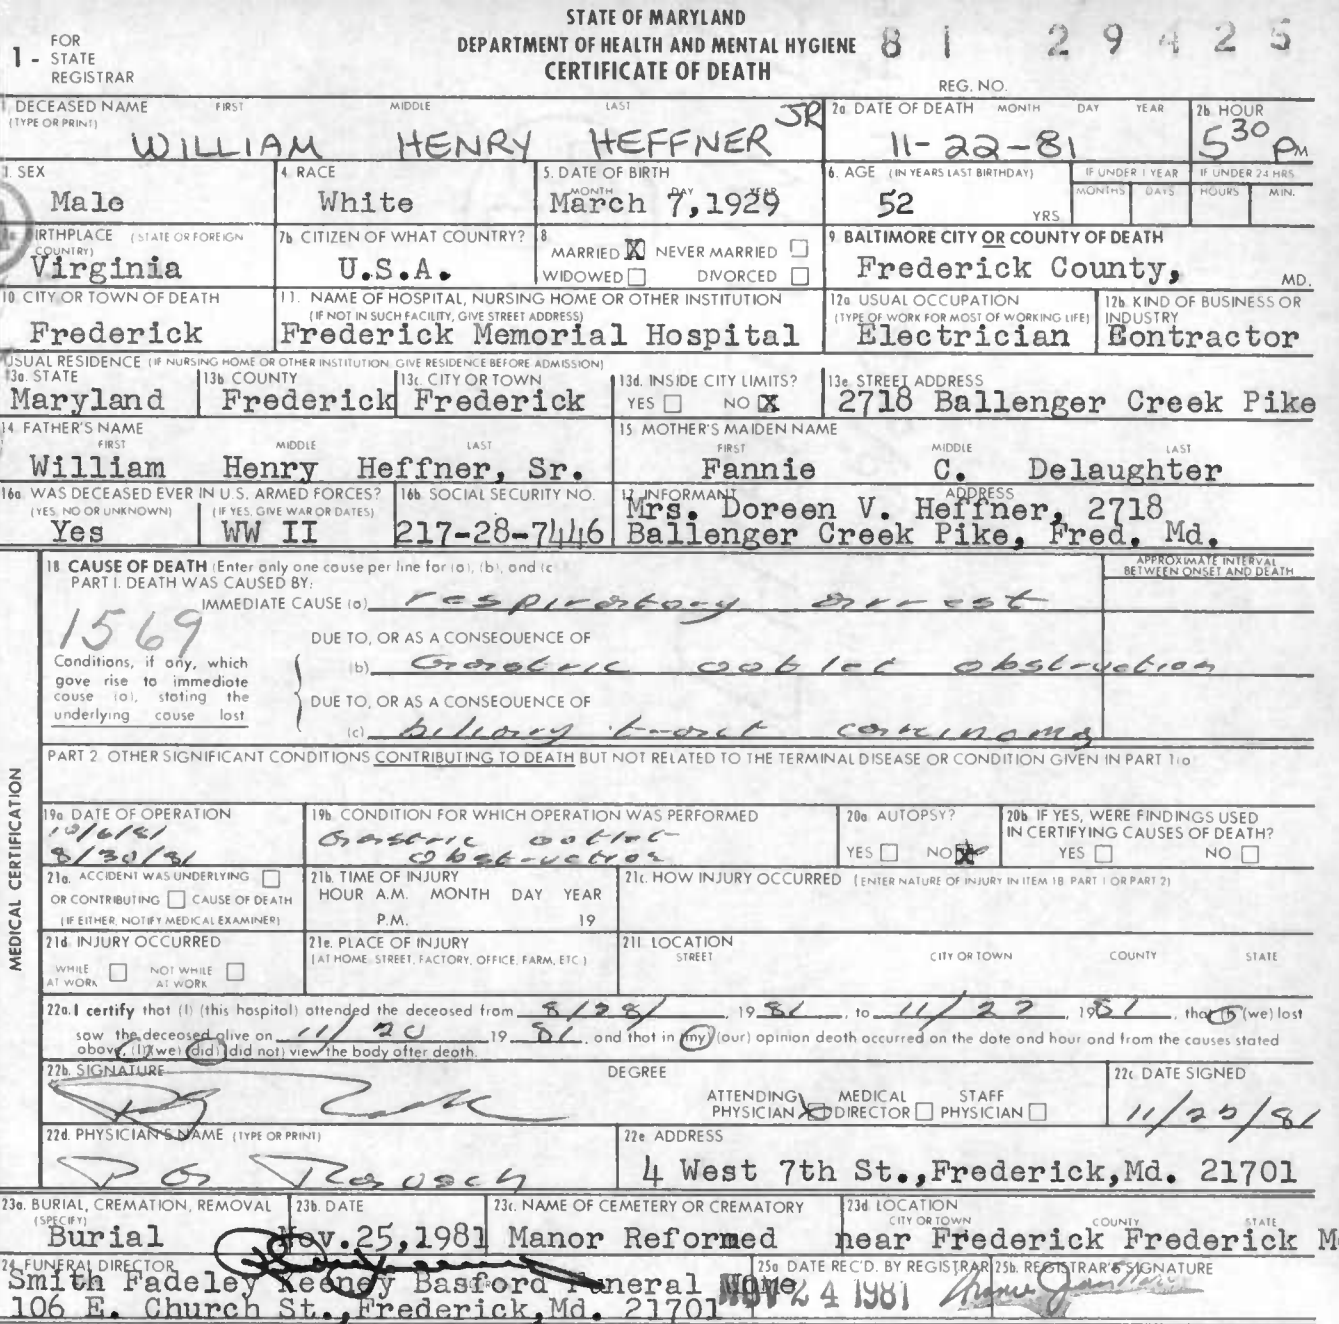 STATE OF MARYLAND
DEPARTMENT OF HEALTH AND MENTAL HYGIENE
CERTIFICATE OF DEATH
81 29425
REG. NO.
1 - FOR STATE REGISTRAR
1. DECEASED NAME (TYPE OR PRINT) FIRST MIDDLE LAST
WILLIAM HENRY HEFFNER JR
2a. DATE OF DEATH MONTH DAY YEAR
11-22-81
2b. HOUR
5 30 PM
3. SEX
Male
4. RACE
White
5. DATE OF BIRTH MONTH DAY YEAR
March 7, 1929
6. AGE (IN YEARS LAST BIRTHDAY)
52 YRS
IF UNDER 1 YEAR MONTHS DAYS
IF UNDER 24 HRS HOURS MIN.
BIRTHPLACE (STATE OR FOREIGN COUNTRY)
Virginia
7b. CITIZEN OF WHAT COUNTRY?
U.S.A.
8. MARRIED X NEVER MARRIED
WIDOWED DIVORCED
9. BALTIMORE CITY OR COUNTY OF DEATH
Frederick County, MD.
10. CITY OR TOWN OF DEATH
Frederick
11. NAME OF HOSPITAL, NURSING HOME OR OTHER INSTITUTION
(IF NOT IN SUCH FACILITY, GIVE STREET ADDRESS)
Frederick Memorial Hospital
12a. USUAL OCCUPATION
(TYPE OF WORK FOR MOST OF WORKING LIFE)
Electrician
12b. KIND OF BUSINESS OR INDUSTRY
Eontractor
USUAL RESIDENCE (IF NURSING HOME OR OTHER INSTITUTION GIVE RESIDENCE BEFORE ADMISSION)
13a. STATE
Maryland
13b. COUNTY
Frederick
13c. CITY OR TOWN
Frederick
13d. INSIDE CITY LIMITS?
YES NO X
13e. STREET ADDRESS
2718 Ballenger Creek Pike
14. FATHER'S NAME
FIRST MIDDLE LAST
William Henry Heffner, Sr.
15. MOTHER'S MAIDEN NAME
FIRST MIDDLE LAST
Fannie C. Delaughter
16a. WAS DECEASED EVER IN U.S. ARMED FORCES?
(YES, NO OR UNKNOWN) (IF YES, GIVE WAR OR DATES)
Yes WW II
16b. SOCIAL SECURITY NO.
217-28-7446
17. INFORMANT ADDRESS
Mrs. Doreen V. Heffner, 2718
Ballenger Creek Pike, Fred. Md.
18. CAUSE OF DEATH (Enter only one cause per line for (a), (b), and (c
APPROXIMATE INTERVAL BETWEEN ONSET AND DEATH
PART I. DEATH WAS CAUSED BY:
IMMEDIATE CAUSE (a) respiratory arrest
1569
DUE TO, OR AS A CONSEQUENCE OF
(b) Gastric outlet obstruction
Conditions, if any, which gave rise to immediate cause (a), stating the underlying cause last
DUE TO, OR AS A CONSEQUENCE OF
(c) biliary tract carcinoma
PART 2. OTHER SIGNIFICANT CONDITIONS CONTRIBUTING TO DEATH BUT NOT RELATED TO THE TERMINAL DISEASE OR CONDITION GIVEN IN PART 1(a)
MEDICAL CERTIFICATION
19a. DATE OF OPERATION
10/6/81
8/30/81
19b. CONDITION FOR WHICH OPERATION WAS PERFORMED
Gastric outlet
Obstruction
20a. AUTOPSY?
YES NO X
20b. IF YES, WERE FINDINGS USED IN CERTIFYING CAUSES OF DEATH?
YES NO
21a. ACCIDENT WAS UNDERLYING
OR CONTRIBUTING CAUSE OF DEATH
(IF EITHER, NOTIFY MEDICAL EXAMINER)
21b. TIME OF INJURY
HOUR A.M. MONTH DAY YEAR
P.M. 19
21c. HOW INJURY OCCURRED (ENTER NATURE OF INJURY IN ITEM 18 PART 1 OR PART 2)
21d. INJURY OCCURRED
WHILE AT WORK NOT WHILE AT WORK
21e. PLACE OF INJURY
(AT HOME, STREET, FACTORY, OFFICE, FARM, ETC.)
21f. LOCATION
STREET CITY OR TOWN COUNTY STATE
22a. I certify that (I) (this hospital) attended the deceased from 8/28/ 1981, to 11/22, 1981, that (I) (we) last
saw the deceased alive on 11/20 1981, and that in (my) (our) opinion death occurred on the date and hour and from the causes stated
above, (I) (we) (did) (did not) view the body after death.
22b. SIGNATURE
DEGREE
ATTENDING PHYSICIAN X MEDICAL DIRECTOR STAFF PHYSICIAN
22c. DATE SIGNED
11/23/81
22d. PHYSICIAN'S NAME (TYPE OR PRINT)
22e. ADDRESS
4 West 7th St., Frederick, Md. 21701
23a. BURIAL, CREMATION, REMOVAL (SPECIFY)
Burial
23b. DATE
Nov. 25, 1981
23c. NAME OF CEMETERY OR CREMATORY
Manor Reformed
23d. LOCATION
CITY OR TOWN COUNTY STATE
near Frederick Frederick M
24. FUNERAL DIRECTOR
Smith Fadeley Keeney Basford Funeral Home
106 E. Church St., Frederick, Md. 21701
25a. DATE REC'D. BY REGISTRAR
NOV 24 1981
25b. REGISTRAR'S SIGNATURE